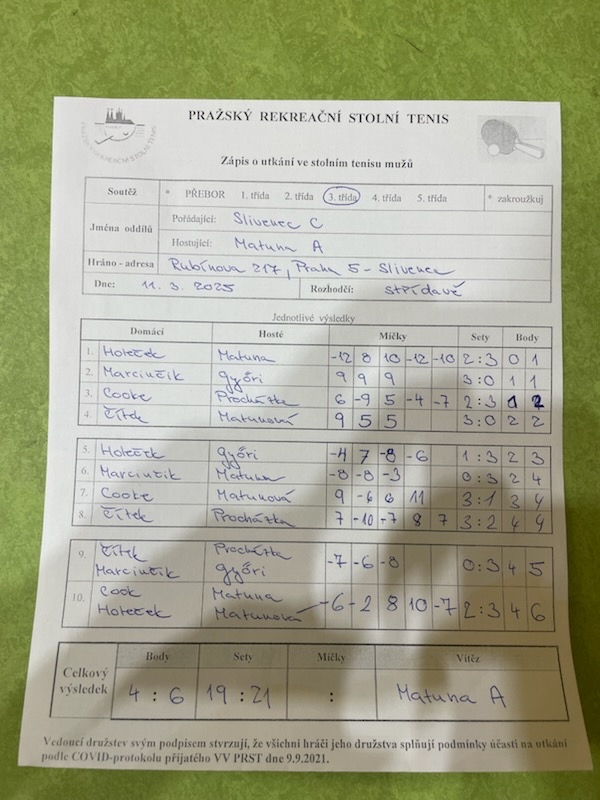 PRAŽSKÝ REKREAČNÍ STOLNÍ TENIS
Zápis o utkání ve stolním tenisu mužů
Soutěž * PŘEBOR 1. třída 2. třída 3. třída 4. třída 5. třída * zakroužkuj
Jména oddílů Pořádající: Slivenec C
Hostující: Matuna A
Hráno - adresa Rubínova 217, Praha 5 - Slivenec
Dne: 11. 3. 2025 Rozhodčí: střídavě
Jednotlivé výsledky
Domácí Hosté Míčky Sety Body
1. Holeček Matuna -12 8 10 -12 -10 2:3 0 1
2. Marcinčik Győri 9 9 9 3:0 1 1
3. Cooke Procházka 6 -9 5 -4 -7 2:3 1 2
4. Čítek Matunová 9 5 5 3:0 2 2
5. Holeček Győri -4 7 -8 -6 1:3 2 3
6. Marcinčik Matuna -8 -8 -3 0:3 2 4
7. Cooke Matunová 9 -6 6 11 3:1 3 4
8. Čítek Procházka 7 -10 -7 8 7 3:2 4 4
9. Čítek Procházka
Marcinčik Győri -7 -6 -8 0:3 4 5
10. Cook Matuna
Holeček Matunová -6 -2 8 10 -7 2:3 4 6
Celkový výsledek Body Sety Míčky Vítěz
4 : 6 19 : 21 : Matuna A
Vedoucí družstev svým podpisem stvrzují, že všichni hráči jeho družstva splňují podmínky účasti na utkání
podle COVID-protokolu přijatého VV PRST dne 9.9.2021.